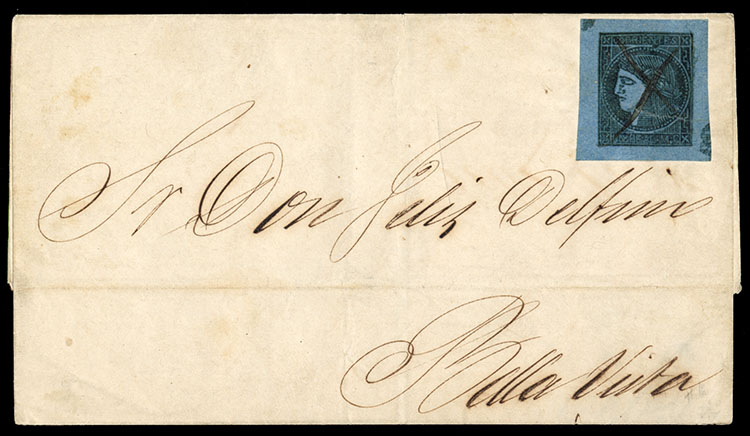 Sr Don Felix Delfin
Bella Vista